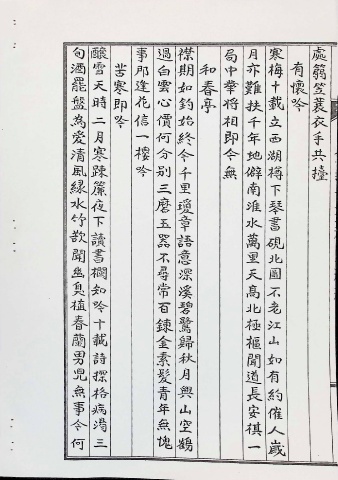 處蒻笠蓑衣手共擡
有懷吟
寒梅十載立西湖樽下琴書硯北圖不老江山如有約催人歲
月亦難扶千年地僻南淮水萬里天高北極樞聞道長安棋一
局中華將相即今無
和春亭
襟期如釣始終令千里瓊章語意深溪碧鷺歸秋月興山空鶴
過白雲心價何分別三磨玉器不尋常百鍊金素髮青年無愧
事那逢花信一樓吟
苦寒即吟
釀雪天時二月寒疎簾夜下讀書欄如吟十載詩探格病渴三
旬酒罷盤為愛清風綠水竹欲聞幽臭植春蘭男兒無事今何